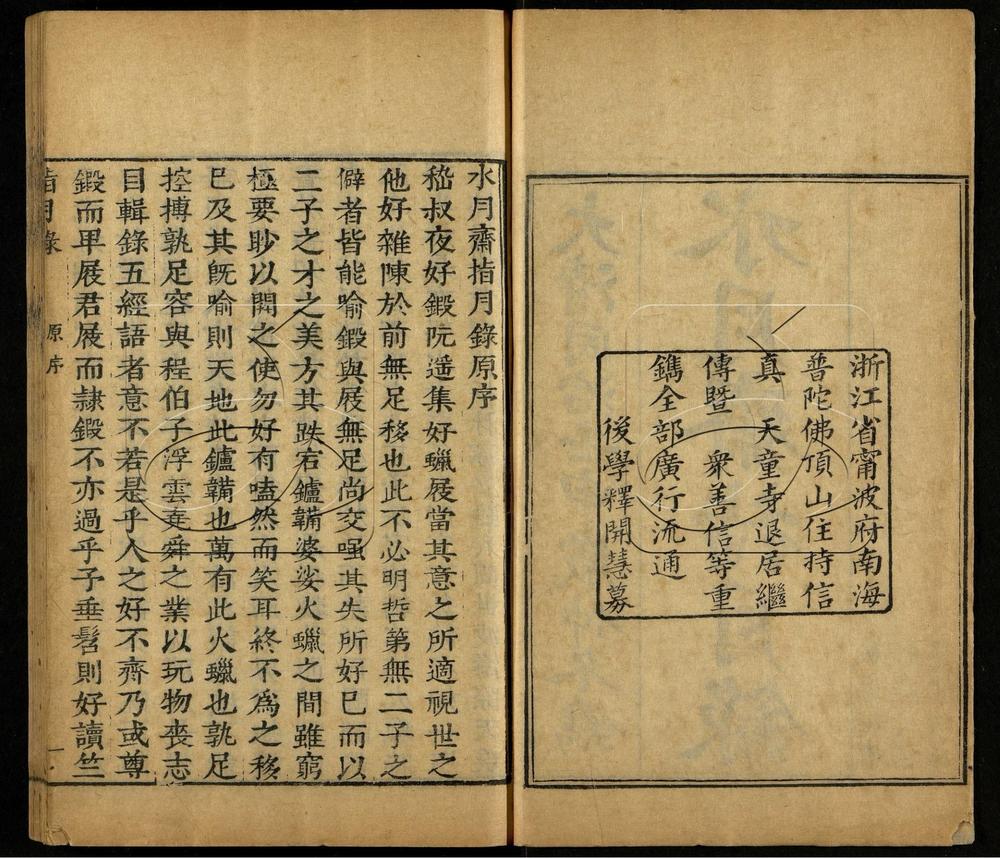 浙江省甯波府南海
普陀佛頂山住持信
真　天童寺退居繼
傳暨　衆善信等重
鐫全部廣行流通
後學釋開慧募
水月齋指月錄原序
嵇叔夜好鍛阮遥集好蠟屐當其意之所適視世之
他好雜陳於前無足移也此不必明哲第無二子之
僻者皆能喻鍛與屐無足尚交嗤其失所好巳而以
二子之才之美方其跌宕鑪韛婆娑火蠟之間雖窮
極要眇以閧之使勿好有嗑然而笑耳終不爲之移
巳及其旣喻則天地此鑪韛也萬有此火蠟也孰足
控搏孰足容與程伯子浮雲堯舜之業以玩物喪志
目輯錄五經語者意不若是乎人之好不齊乃或尊
鍛而卑屐君屐而隷鍛不亦過乎予垂髫則好讀竺
指月錄　原序　一